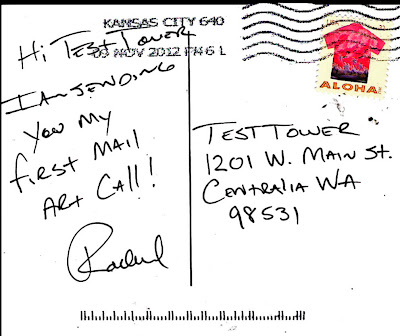 KANSAS CITY 640
09 NOV 2012 PM 6 L
Hi TEST TOWER
I AM SENDING
YOU MY
FIRST MAIL
ART CALL!
Rachel
ALOHA
TEST TOWER
1201 W. MAIN ST.
CENTRALIA WA
98531